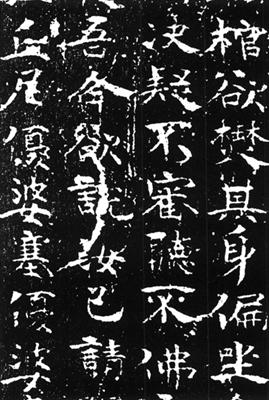 棺欲樊其身偏坐
決疑不審聽不佛
吾今欲說汝已請
丘尼優婆塞優婆